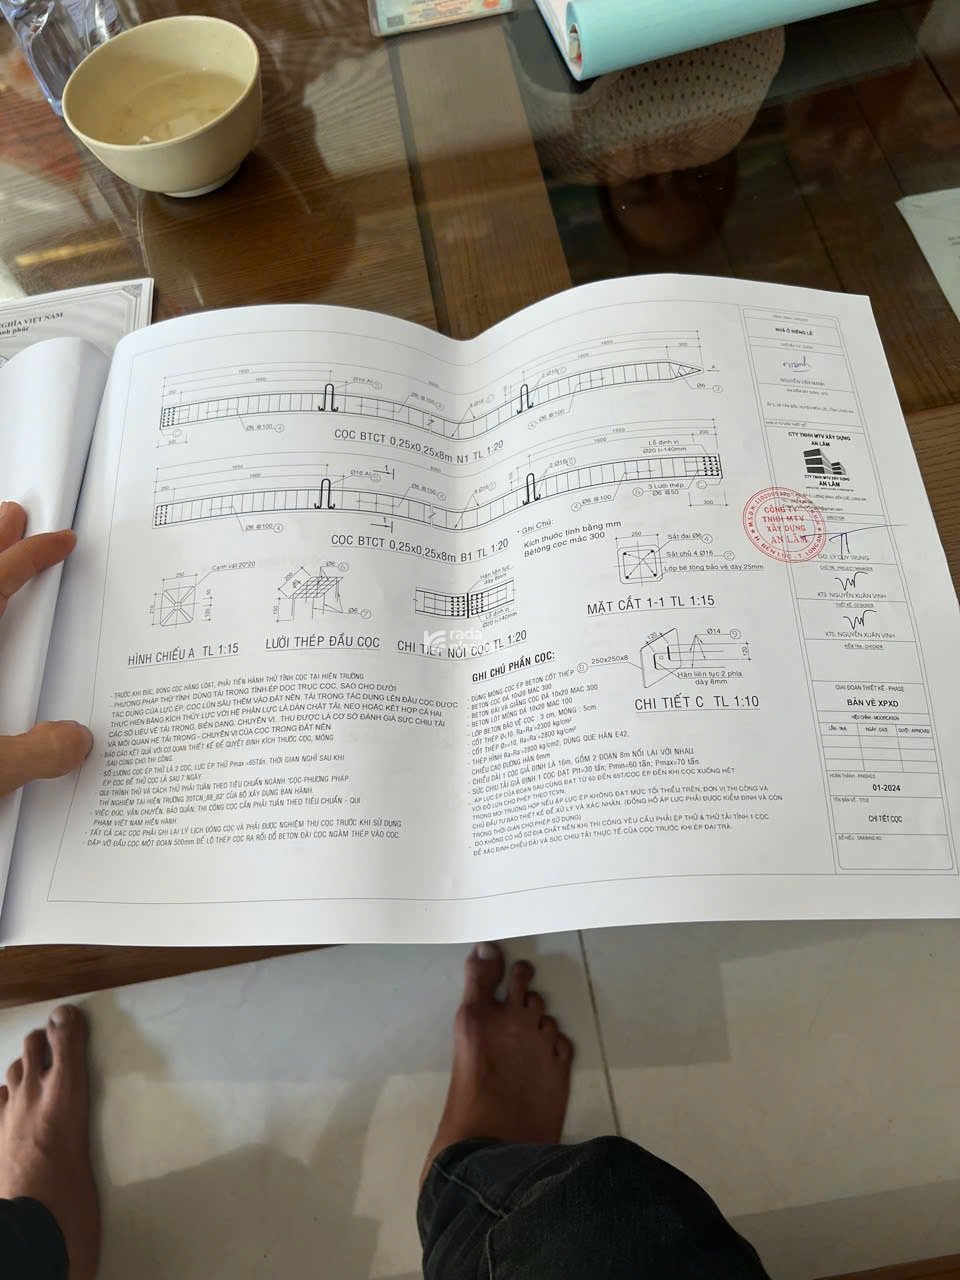 NGHĨA VIỆT NAM
1650
1650
300
250
1600
Ø16
6000
2 Ø16
1600
250
Ø6 @100
Ø6 @150
Ø6
A
Ø6 @100
300
CỌC BTCT 0,25x0,25x8m N1 TL 1:20
1650
1550
200
250
1600
Ø16
1
6000
2 Ø16
1600
Lỗ định vị
Ø20 l=140mm
C
Ø6 @150
3 Lưới thép
Ø6 @50
Ø6 @100
1
Ø6 @100
300
CỌC BTCT 0,25x0,25x8m B1 TL 1:20
• Ghi Chú:
Kích thước tính bằng mm
Bêtông cọc mác 300
250
Canh vát 20*20
HÌNH CHIẾU A TL 1:15
Ø6
Ø6
LƯỚI THÉP ĐẦU CỌC
Hàn liên tục
dày 8mm
Lỗ định vị
Ø20 l=140mm
CHI TIẾT NỐI CỌC TL 1:20
250
Sắt đai Ø6
Sắt chủ 4 Ø16
Lớp bê tông bảo vệ dày 25mm
MẶT CẮT 1-1 TL 1:15
120
Ø14
250x250x8
120
Hàn liên tục 2 phía
dày 8mm
CHI TIẾT C TL 1:10
- TRƯỚC KHI ĐÚC, ĐÓNG CỌC HÀNG LOẠT, PHẢI TIẾN HÀNH THỬ TĨNH CỌC TẠI HIỆN TRƯỜNG
- PHƯƠNG PHÁP THỬ TĨNH: DÙNG TẢI TRỌNG TĨNH ÉP DỌC TRỤC CỌC, SAO CHO DƯỚI
TÁC DỤNG CỦA LỰC ÉP, CỌC LÚN SÂU THÊM VÀO ĐẤT NỀN. TẢI TRỌNG TÁC DỤNG LÊN ĐẦU CỌC ĐƯỢC
THỰC HIỆN BẰNG KÍCH THỦY LỰC VỚI HỆ PHẢN LỰC LÀ DÀN CHẤT TẢI, NEO HOẶC KẾT HỢP CẢ HAI.
CÁC SỐ LIỆU VỀ TẢI TRỌNG, BIẾN DẠNG, CHUYỂN VỊ.. THU ĐƯỢC LÀ CƠ SỞ ĐÁNH GIÁ SỨC CHỊU TẢI
VÀ MỐI QUAN HỆ TẢI TRỌNG - CHUYỂN VỊ CỦA CỌC TRONG ĐẤT NỀN.
- BÁO CÁO KẾT QUẢ VỚI CƠ QUAN THIẾT KẾ ĐỂ QUYẾT ĐỊNH KÍCH THƯỚC CỌC, MÓNG
SAU CÙNG CHO THI CÔNG.
- SỐ LƯỢNG CỌC ÉP THỬ LÀ 2 CỌC, LỰC ÉP THỬ Pmax =65Tấn, THỜI GIAN NGHỈ SAU KHI
ÉP CỌC ĐỂ THỬ CỌC LÀ SAU 7 NGÀY.
- QUI TRÌNH THỬ VÀ CÁCH THỬ PHẢI TUÂN THEO TIÊU CHUẨN NGÀNH "CỌC-PHƯƠNG PHÁP
THÍ NGHIỆM TẠI HIỆN TRƯỜNG 20TCN_88_82" CỦA BỘ XÂY DỰNG BAN HÀNH.
- VIỆC ĐÚC, VẬN CHUYỂN, BẢO QUẢN, THI CÔNG CỌC CẦN PHẢI TUÂN THEO TIÊU CHUẨN - QUI
PHẠM VIỆT NAM HIỆN HÀNH.
- TẤT CẢ CÁC CỌC PHẢI GHI LẠI LÝ LỊCH ĐÓNG CỌC VÀ PHẢI ĐƯỢC NGHIỆM THU CỌC TRƯỚC KHI SỬ DỤNG
- ĐẬP VỠ ĐẦU CỌC MỘT ĐOẠN 500mm ĐỂ LÔ THÉP CỌC RA RỒI ĐỔ BETON ĐÀI CỌC NGÀM THÉP VÀO CỌC.
GHI CHÚ PHẦN CỌC:
- DÙNG MÓNG CỌC ÉP BETON CỐT THÉP
- BETON CỌC ĐÁ 10x20 MAC 300
- BETON ĐÀI VÀ GIẰNG CỌC ĐÁ 10x20 MAC 300
- BETON LÓT MÓNG ĐÁ 10x20 MAC 100
- LỚP BETON BẢO VỆ CỌC : 3 cm, MÓNG : 5cm
- CỐT THÉP Ø<10, Ra=Ra'=2300 kg/cm2
- CỐT THÉP Ø>=10, Ra=Ra'=2800 kg/cm2
- THÉP HÌNH Ra=Ra'=2800 kg/cm2, DÙNG QUE HÀN E42,
CHIỀU CAO ĐƯỜNG HÀN 6mm
- CHIỀU DÀI 1 CỌC GIẢ ĐỊNH LÀ 16m, GỒM 2 ĐOẠN 8m NỐI LẠI VỚI NHAU.
- SỨC CHỊU TẢI GIẢ ĐỊNH 1 CỌC ĐẠT Ptt=30 tấn; Pmin=60 tấn; Pmax=70 tấn.
- ÁP LỰC ÉP CỦA ĐOẠN SAU CÙNG ĐẠT TỪ 60 ĐẾN 65T/CỌC ÉP ĐẾN KHI CỌC XUỐNG HẾT
VỚI ĐỘ LÚN CHO PHÉP THEO TCVN.
- TRONG MỌI TRƯỜNG HỢP NẾU ÁP LỰC ÉP KHÔNG ĐẠT MỨC TỐI THIỂU TRÊN, ĐƠN VỊ THI CÔNG VÀ
CHỦ ĐẦU TƯ BÁO THIẾT KẾ ĐỂ XỬ LÝ VÀ XÁC NHẬN. (ĐỒNG HỒ ÁP LỰC PHẢI ĐƯỢC KIỂM ĐỊNH VÀ CÒN
TRONG THỜI GIAN CHO PHÉP SỬ DỤNG)
- DO KHÔNG CÓ HỒ SƠ ĐỊA CHẤT NÊN KHI THI CÔNG YÊU CẦU PHẢI ÉP THỬ & THỬ TẢI TĨNH 1 CỌC
ĐỂ XÁC ĐỊNH CHIỀU DÀI VÀ SỨC CHỊU TẢI THỰC TẾ CỦA CỌC TRƯỚC KHI ÉP ĐẠI TRÀ.
NHÀ Ở RIÊNG LẺ
NGUYỄN VĂN MẠNH
CTY TNHH MTV XÂY DỰNG
AN LÂM
AN LÂM
CÔNG TY
TNHH MTV
XÂY DỰNG
AN LÂM
H. BẾN LỨC - T. LONG AN
GĐ. LÝ DUY TRUNG
CHỦ TRÌ - PROJECT MANAGER
KTS. NGUYỄN XUÂN VINH
THIẾT KẾ - DESIGNER
KTS. NGUYỄN XUÂN VINH
KIỂM TRA - CHECKER
GIAI ĐOẠN THIẾT KẾ - PHASE
BẢN VẼ XPXD
HIỆU CHỈNH - MODIFICATION
LẦN - TIME
NGÀY - DATE
DUYỆT - APPROVED
HOÀN THÀNH - FINISHED
01-2024
TÊN BẢN VẼ - TITLE
CHI TIẾT CỌC
SỐ HIỆU - DRAWING NO.
rada